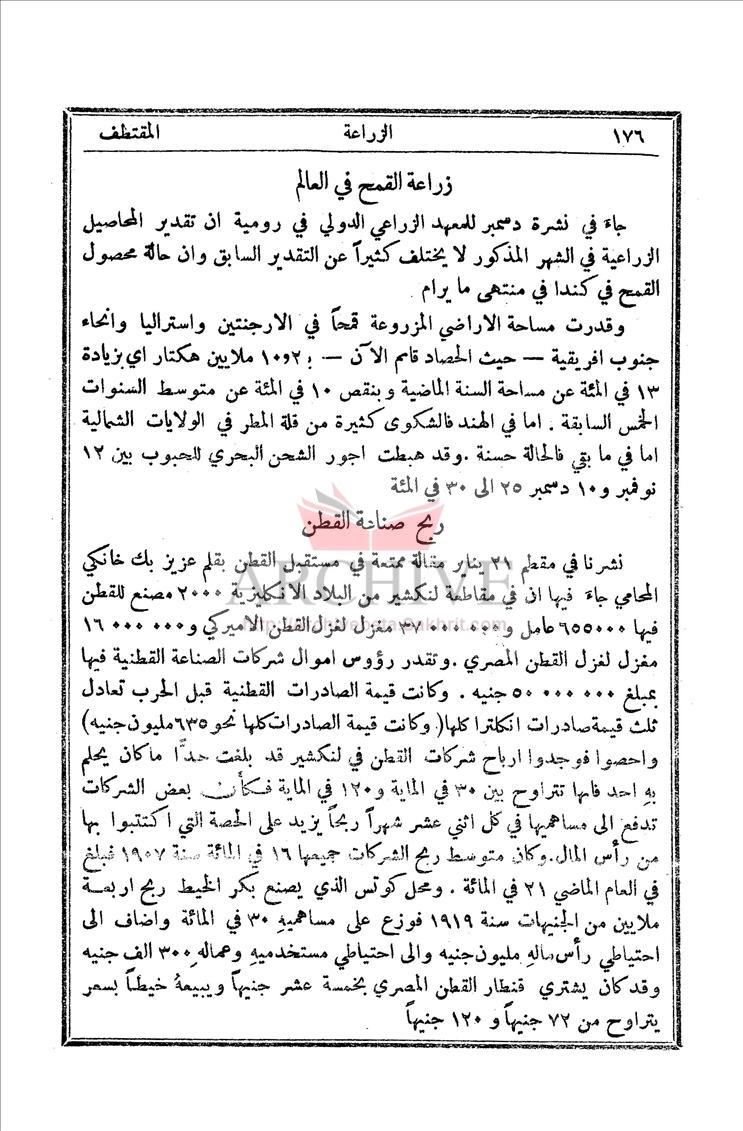 ١٧٦ الزراعة المقتطف
زراعة القمح في العالم
جاءَ في نشرة دسمبر للمعهد الزراعي الدولي في رومية ان تقدير المحاصيل
الزراعية في الشهر المذكور لا يختلف كثيراً عن التقدير السابق وان حالة محصول
القمح في كندا في منتهى ما يرام
وقدرت مساحة الاراضي المزروعة قمحاً في الارجنتين واستراليا وانحاء
جنوب افريقية — حيث الحصاد قائم الآن — بـ ٢و١٠ ملايين هكتار اي بزيادة
١٣ في المئة عن مساحة السنة الماضية وبنقص ١٠ في المئة عن متوسط السنوات
الخمس السابقة . اما في الهند فالشكوى كثيرة من قلة المطر في الولايات الشمالية
اما في ما بقي فالحالة حسنة . وقد هبطت اجور الشحن البحري للحبوب بين ١٢
نوفمبر و١٠ دسمبر ٢٥ الى ٣٠ في المئة
ربح صناعة القطن
نشرنا في مقطم ٢١ يناير مقالة ممتعة في مستقبل القطن بقلم عزيز بك خانكي
المحامي جاءَ فيها ان في مقاطعة لنكشير من البلاد الانكليزية ٢٠٠٠ مصنع للقطن
فيها ٦٥٥٠٠٠ عامل و٠٠٠ ٠٠٠ ٣٧ مغزل لغزل القطن الاميركي و٠٠٠ ٠٠٠ ١٦
مغزل لغزل القطن المصري . وتقدر رؤوس اموال شركات الصناعة القطنية فيها
بمبلغ ٠٠٠ ٠٠٠ ٥٠ جنيه . وكانت قيمة الصادرات القطنية قبل الحرب تعادل
ثلث قيمة صادرات انكلترا كلها (وكانت قيمة الصادرات كلها نحو ٦٣٥ مليون جنيه)
واحصوا فوجدوا ارباح شركات القطن في لنكشير قد بلغت حدًّا ما كان يحلم
بهِ احد فانها تتراوح بين ٣٠ في الماية و١٢٠ في الماية فكأن بعض الشركات
تدفع الى مساهميها في كل اثني عشر شهراً ربحاً يزيد على الحصة التي اكتتبوا بها
من رأس المال . وكان متوسط ربح الشركات جميعها ١٦ في المائة سنة ١٩٠٧ فبلغ
في العام الماضي ٢١ في المائة . ومحل كوتس الذي يصنع بكر الخيط ربح اربعة
ملايين من الجنيهات سنة ١٩١٩ فوزع على مساهميهِ ٣٠ في المائة واضاف الى
احتياطي رأس مالهِ مليون جنيه والى احتياطي مستخدميهِ وعمالهِ ٣٠٠ الف جنيه
وقد كان يشتري قنطار القطن المصري بخمسة عشر جنيهاً ويبيعهُ خيطاً بسعر
يتراوح من ٧٢ جنيهاً و ١٢٠ جنيهاً
ARCHIVE